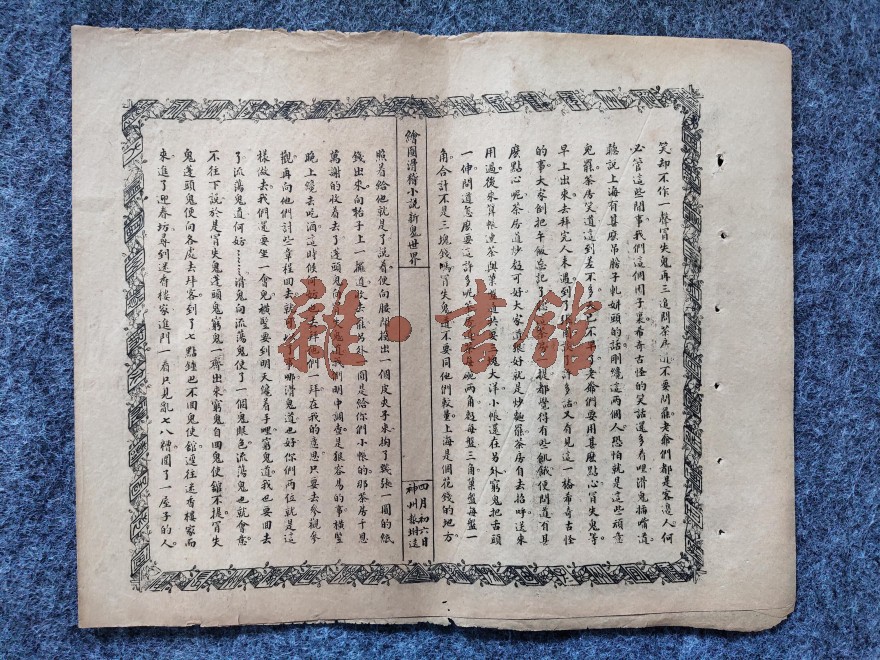 笑却不作一聲冒失鬼再三追問茶房道不要問罷老爺們都是客邊人何
必管這些閒事我們這個園子裏希奇古怪的笑話還多着哩滑鬼插嘴道
聽說上海有甚麽吊膀子軋姘頭的話剛纔這兩個人恐怕就是這些頑意
兒罷茶房笑道這到差不多
老爺們要用甚麽點心冒失鬼等
早上出來去拜完人來遇到了
多話又看見這一樁希奇古怪
的事大家倒把午飯忘記了
提都覺得有些飢餓便問道有甚
麽點心呢茶房道炒麪可好大家道狠好就是炒麪罷茶房自去招呼送來
用過後來算帳連茶與菓
道共要
塊大洋小帳還在另外窮鬼把舌頭
一伸問道怎麽要這許多呢
碗兩角麪每盤三角菓盤每盤一
角合計不是三塊錢嗎冒失鬼道不要同他們較量上海是個花錢的地方
繪圖滑稽小說新鬼世界
四月初六日
神州報附送
照着給他就是了說着便向腰間摸出一個皮夾子來掏了幾張一圓的紙
錢出來向枱子上一擺道收去罷另外一圓是給你們小帳的那茶房千恩
萬謝的收着去了蓬頭鬼
鬼道我們明中調查是狠容易的事橫豎
晚上纔去吃酒這時候何
去拜他們一拜在我的意思只要去參觀參
觀再向他們討些章程回去就
事哪滑鬼道也好你們兩位就是這
樣做去我們還要坐一會兒橫豎要到明天纔着手哩窮鬼道我也要回去
了流蕩鬼道何好……滑鬼向流蕩鬼使了一個鬼眼色流蕩鬼也就會意
不往下說於是冒失鬼蓬頭鬼窮鬼一齊出來窮鬼自回鬼使館不提冒失
鬼蓬頭鬼便向各處去拜客到了七點鐘也不回鬼使館逕往迷香樓家而
來進了迎春坊尋到迷香樓家進門一看只見亂七八糟圍了一屋子的人
雜·書館